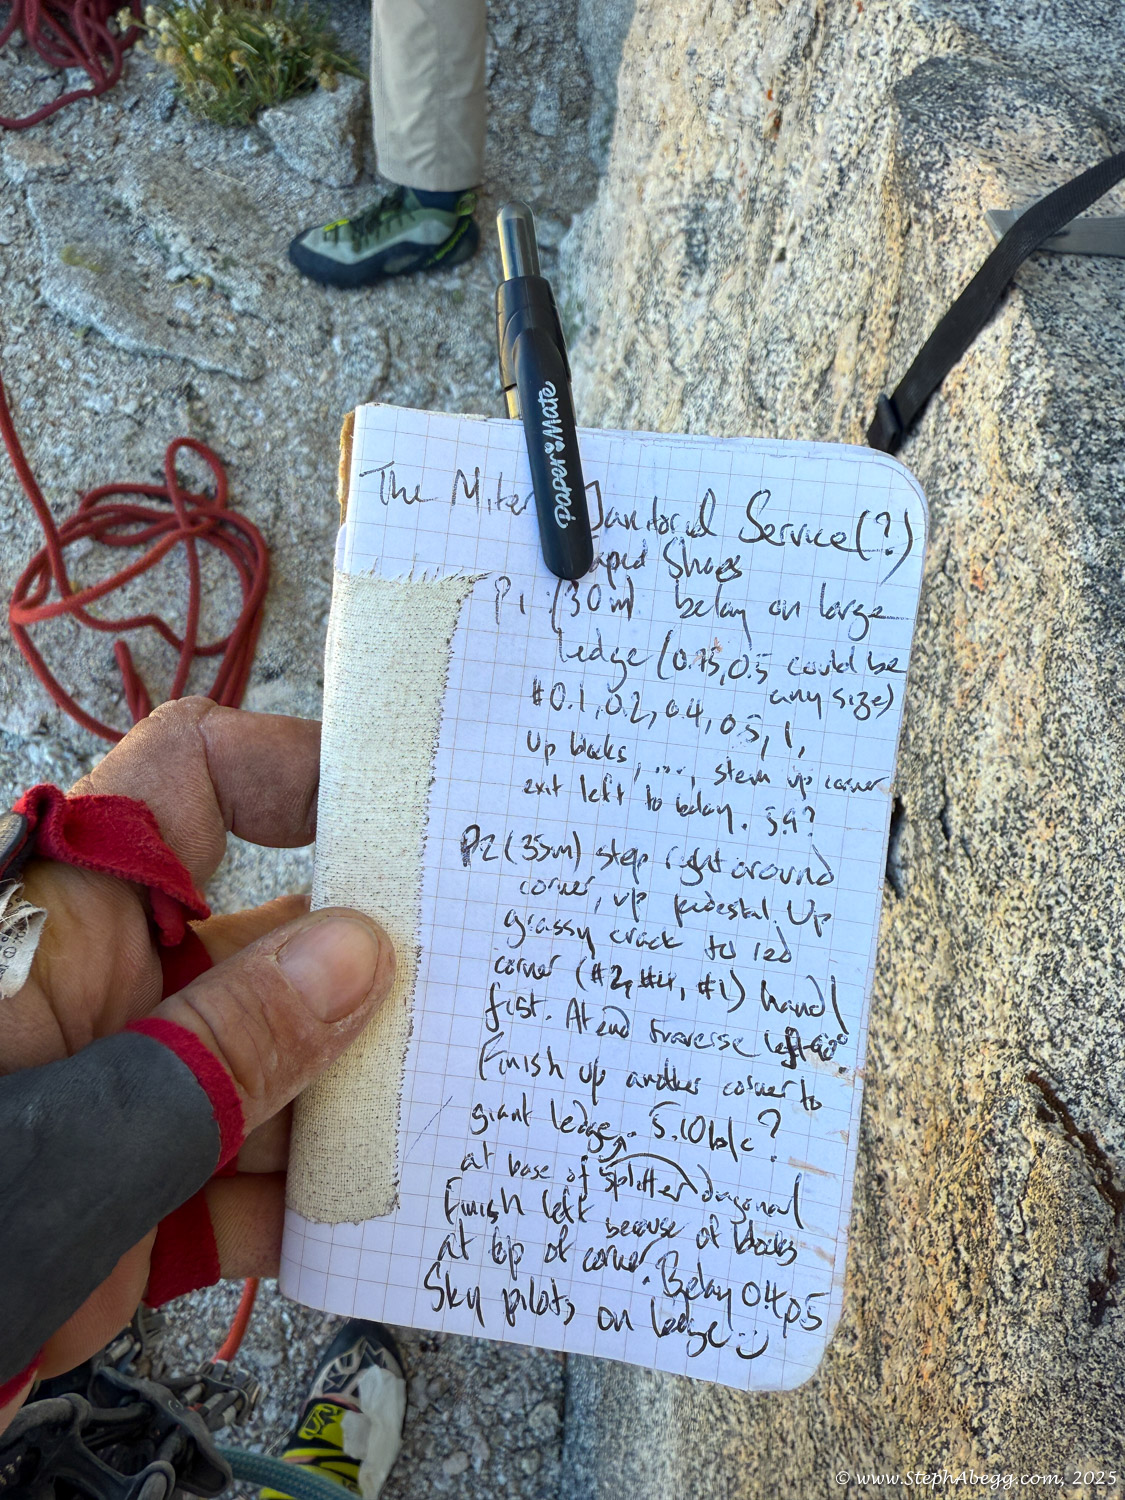 Paper Mate
The Miter Janitorial Service (?)
aped Shoes
P1 (30m) belay on large
ledge (0.75, 0.5 could be
any size)
#0.1, 0.2, 0.4, 0.5, 1,
Up blocks, ..., stem up corner
exit left to belay. 5.9?
P2 (35m) step right around
corner, up pedestal. Up
grassy crack to red
corner (#2, #4, #1) hand/
fist. At end traverse left
Finish up another corner to
giant ledge. 5.10b/c?
at base of splitter diagonal
Finish left because of blocks
at top of corner. Belay 0.4, 0.5
Sky pilots on ledge! :)
© www.StephAbegg.com, 2025